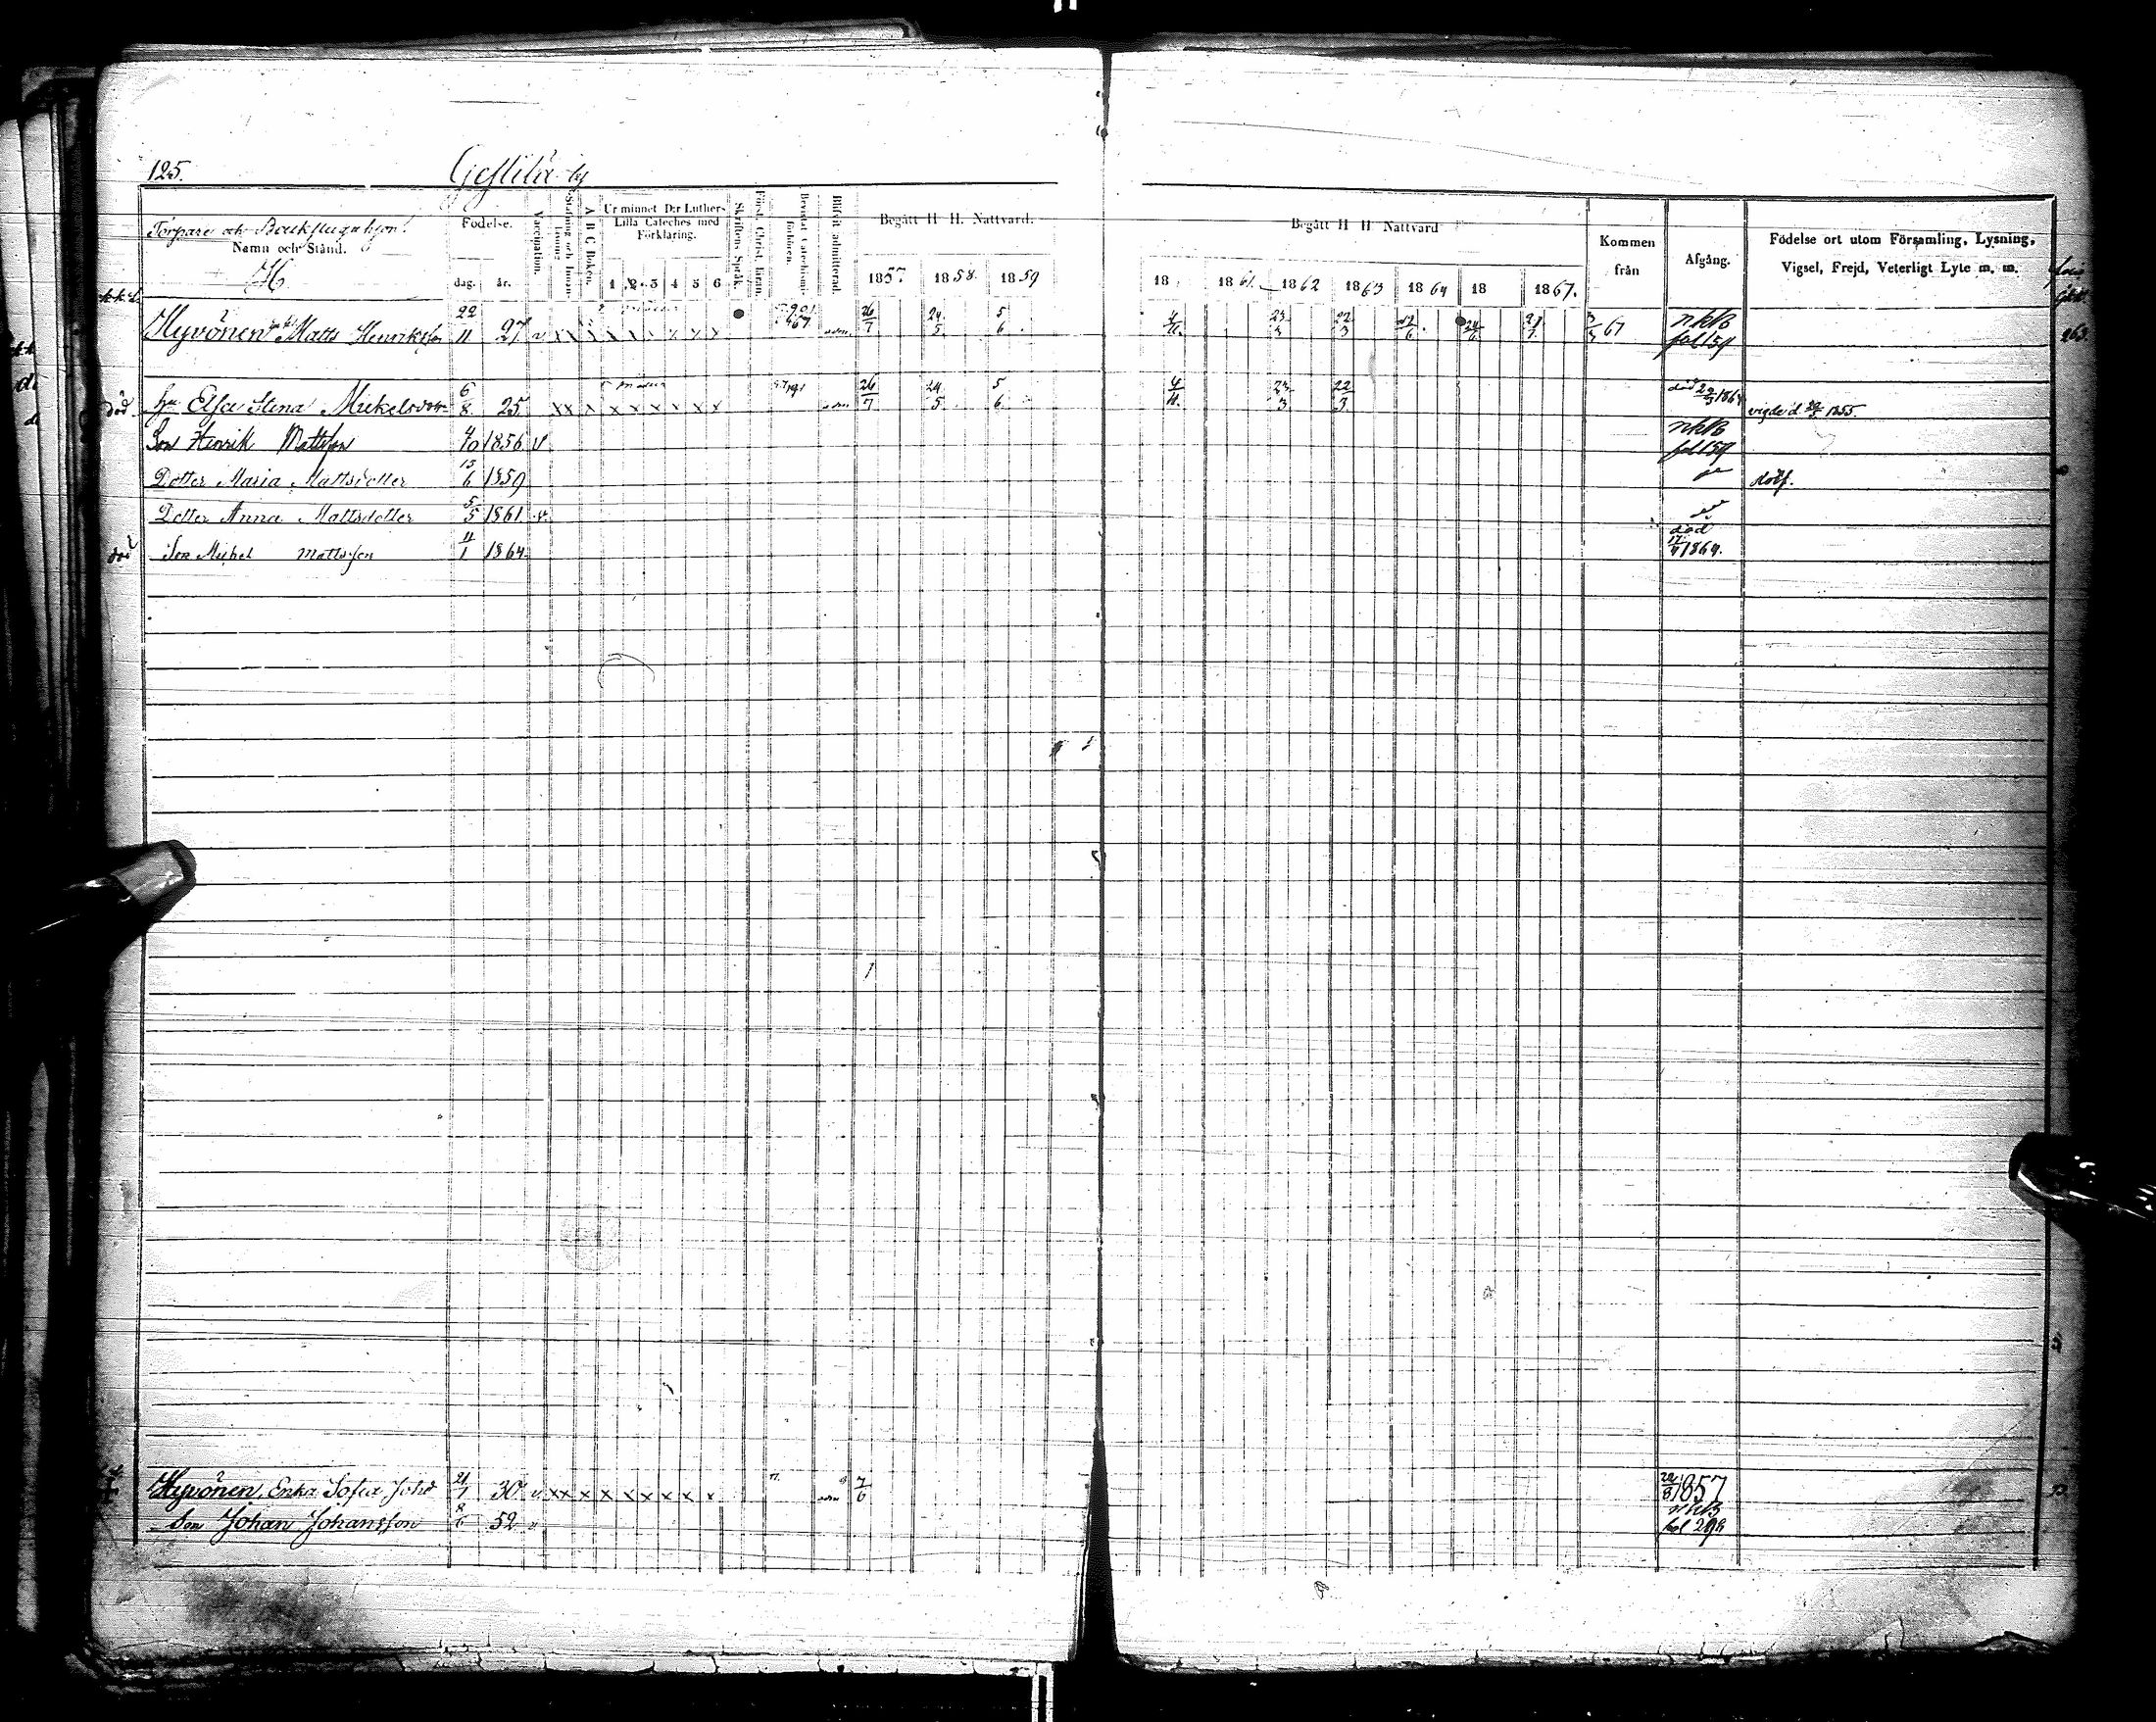 125. Gestilä by
Torpare och Backstuguhjon.
Namn och Stånd.
H.
Födelse.
dag. år.
Vaccination.
Stafning och Innan-läsning
A B C Boken.
Ur minnet D:r Luthers Lilla Cateches med Förklaring.
1 2 3 4 5 6
Skriftens Språk.
Först. Christ. läran.
Bevistat Catechismi-förhören.
Blifvit admitterad.
Begått H H. Nattvard.
1857. 1858. 1859
Begått H H Nattvard
18 1861. 1862 1863 1864 18 1867.
Kommen från
Afgång.
Födelse ort utom Församling, Lysning, Vigsel, Frejd, Veterligt Lyte m. m.
Hyvönen Matts Henriksson 22/11 27 v x x x x x x x x adm. 26/7 24/5. 5/6. 4/11. 23/3 22/3 24/6 21/7. 3/3 67 nkB fol 159
död hu Elsa Stina Mickelsdotter 6/8 25 x x x x x x x x x adm 26/7 24/5. 5/6 4/11. 23/3 22/3 död 22/5 1864 vigde d 1855.
Son Henrik Mattsson 4/10 1856. v. nkB fol 159
Dotter Maria Mattsdotter 15/6 1859 döf.
Dotter Anna Mattsdotter 5/5 1861. v.
död Son Mickel Mattsson 11/1 1864. död 17/4 1864.
Hyvönen Erika Sofia Johd 21/1 30 v x x x x x x x x adm 7/6 22/8 1857
Son Johan Johansson 8/6 52 v nkB fol 298